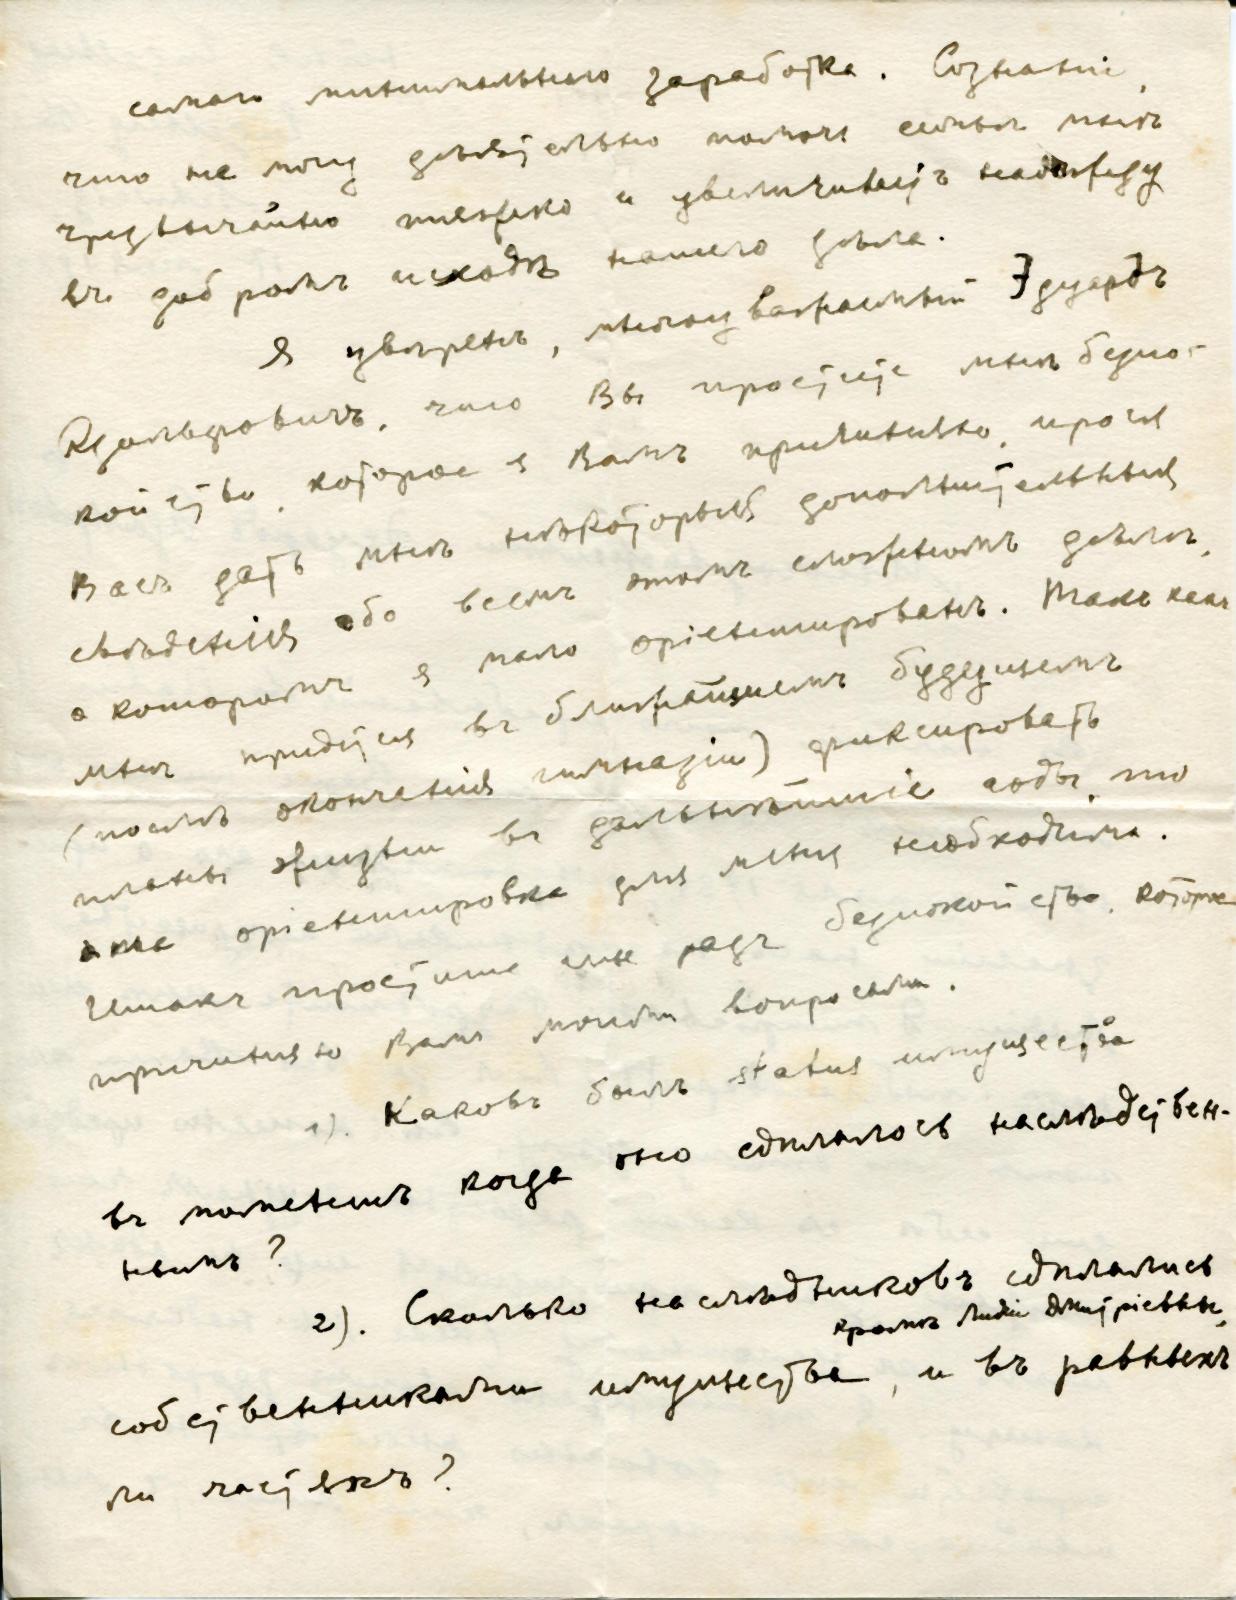 самаго минимальнаго заработка. Сознанiе,
что не могу дѣятельно помочь семьѣ мнѣ
чрезвычайно тяжело и увеличиваетъ надежду
въ добромъ исходѣ нашего дѣла.
Я увѣренъ, многоуважаемый Эдуардъ
Адольфовичъ, что Вы простите мнѣ безпо-
койство, которое я Вамъ причиняю, прося
Васъ дать мнѣ нѣкоторыя дополнительныя
свѣдѣнiя обо всемъ этомъ сложномъ дѣлѣ,
о которомъ я мало орiентированъ. Такъ какъ
мнѣ придется въ ближайшемъ будущемъ
(послѣ окончанiя гимназiи) фиксировать
планы жизни въ дальнѣйшiе годы, то
эта орiентировка для меня необходима.
Итакъ простите мнѣ радъ безпокойство, которое
причиняю Вамъ моими вопросами.
1). Каковъ былъ status имущества
въ моментъ когда оно сдѣлалось наслѣдствен-
нымъ?
2). Сколько наслѣдниковъ сдѣлались
кромѣ Лидiи Дмитрiевны,
собственниками имущества, и въ равныхъ
ли частяхъ?